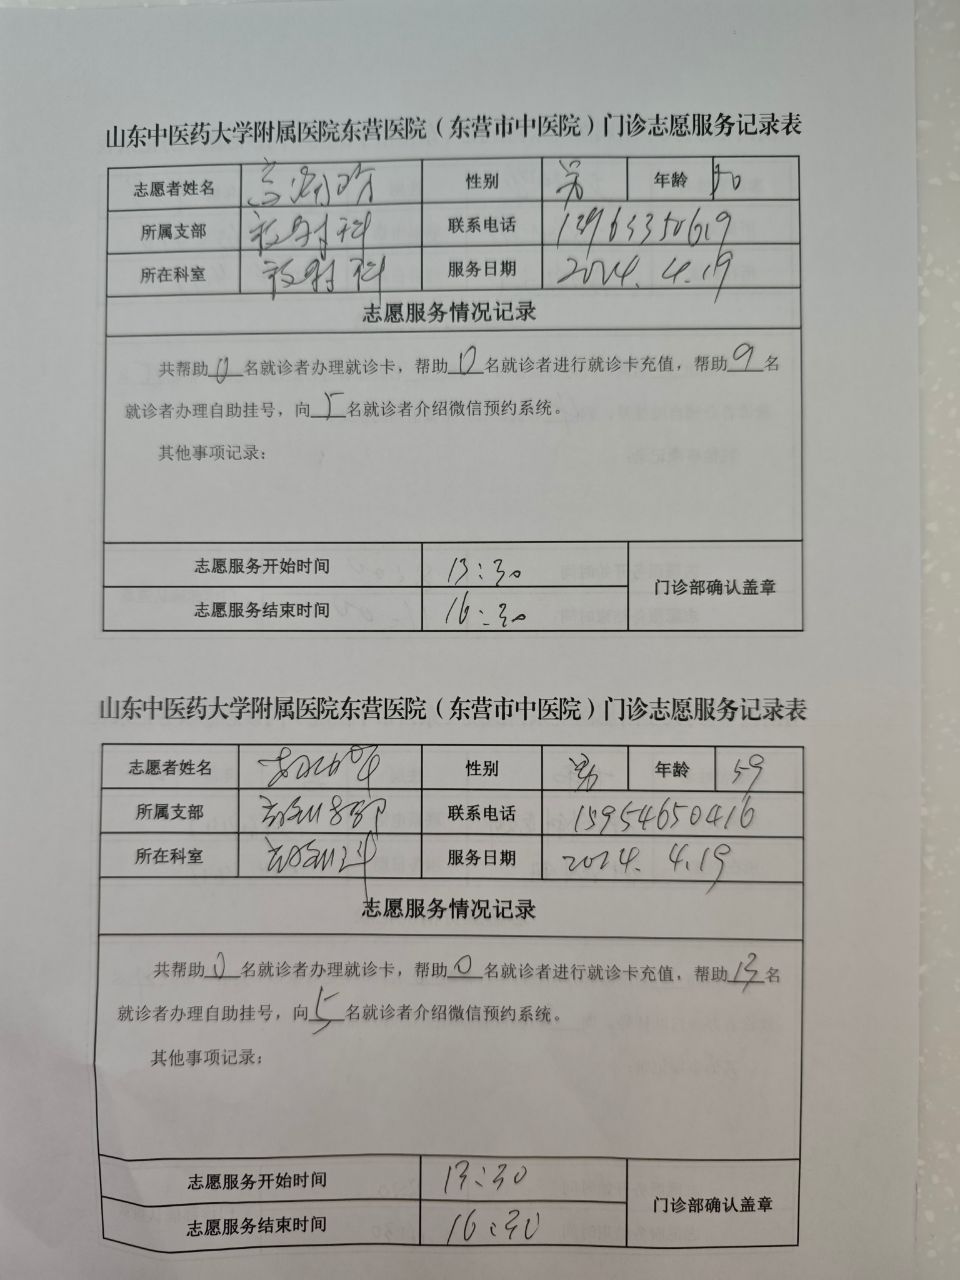 山东中医药大学附属医院东营医院（东营市中医院）门诊志愿服务记录表
志愿者姓名 性别 男 年龄 50
所属支部 放射科 联系电话
所在科室 放射科 服务日期 2024.4.19
志愿服务情况记录
共帮助0名就诊者办理就诊卡，帮助0名就诊者进行就诊卡充值，帮助9名
就诊者办理自助挂号，向5名就诊者介绍微信预约系统。
其他事项记录：
志愿服务开始时间 13:30
门诊部确认盖章
志愿服务结束时间 16:30
山东中医药大学附属医院东营医院（东营市中医院）门诊志愿服务记录表
志愿者姓名 性别 男 年龄 59
所属支部 联系电话 15954650416
所在科室 服务日期 2024.4.19
志愿服务情况记录
共帮助0名就诊者办理就诊卡，帮助0名就诊者进行就诊卡充值，帮助13名
就诊者办理自助挂号，向5名就诊者介绍微信预约系统。
其他事项记录：
志愿服务开始时间 13:30
门诊部确认盖章
志愿服务结束时间 16:30